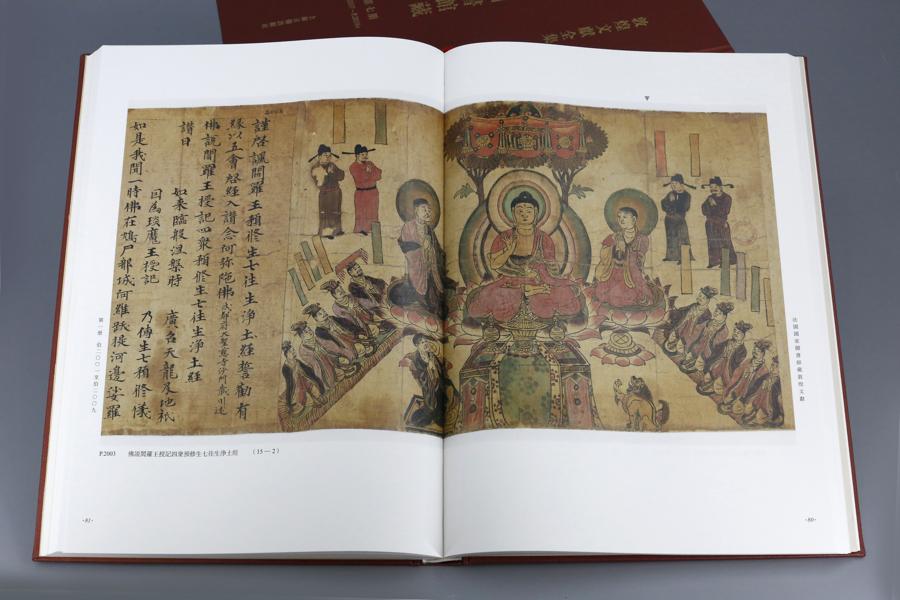 敦煌文獻全集
書館藏
上海古籍出版社
法國國家圖書館藏敦煌文獻
謹啓諷閻羅王預修生七往生淨土經誓勸有
緣以五會啓經入讚念阿弥陁佛 成都府大聖慈寺沙門藏川述
佛說閻羅王授記四衆預修生七往生淨土經
讚曰
如来臨般涅槃時 廣召天龍及地祇
因爲琰魔王授記 乃傳生七預修儀
如是我聞一時佛在鳩尸那城阿維跋提河邊娑羅
第一册 伯二〇〇一至伯二〇〇九
P.2003 佛說閻羅王授記四衆預修生七往生淨土經 (15—2)
·80·
·81·